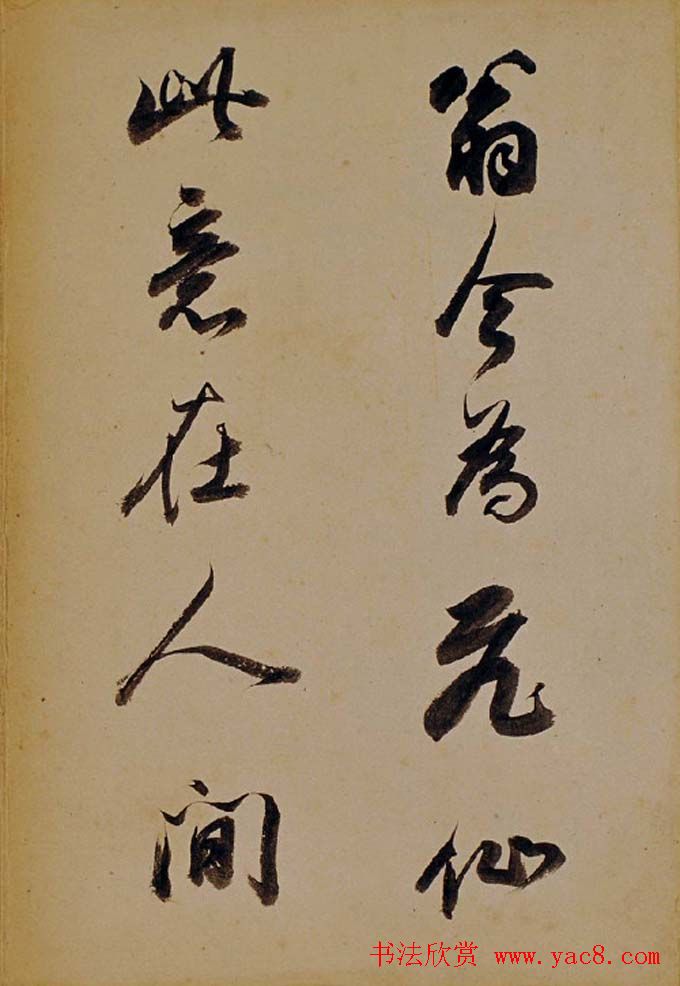 翁今為飛仙
此意在人間
书法欣赏 www.yac8.com